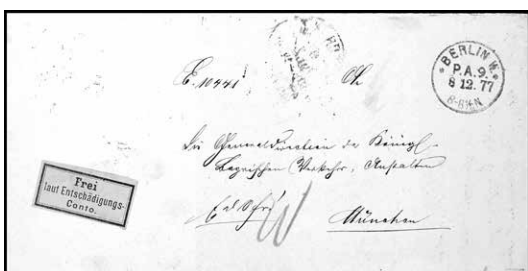 E. 10441
BERLIN W.
P.A.9.
8 12. 77
8-8½N.
Die Generaldirection der Königl.
Bayrischen Verkehrs-Anstalten
München
Frei
laut Entschädigungs-
Conto.